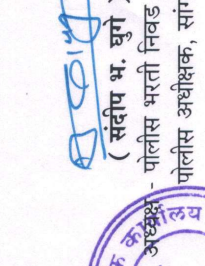 ( संदीप भ. घुगे )
अध्यक्ष - पोलीस भरती निवड
पोलीस अधीक्षक, सांग
कार्यालय